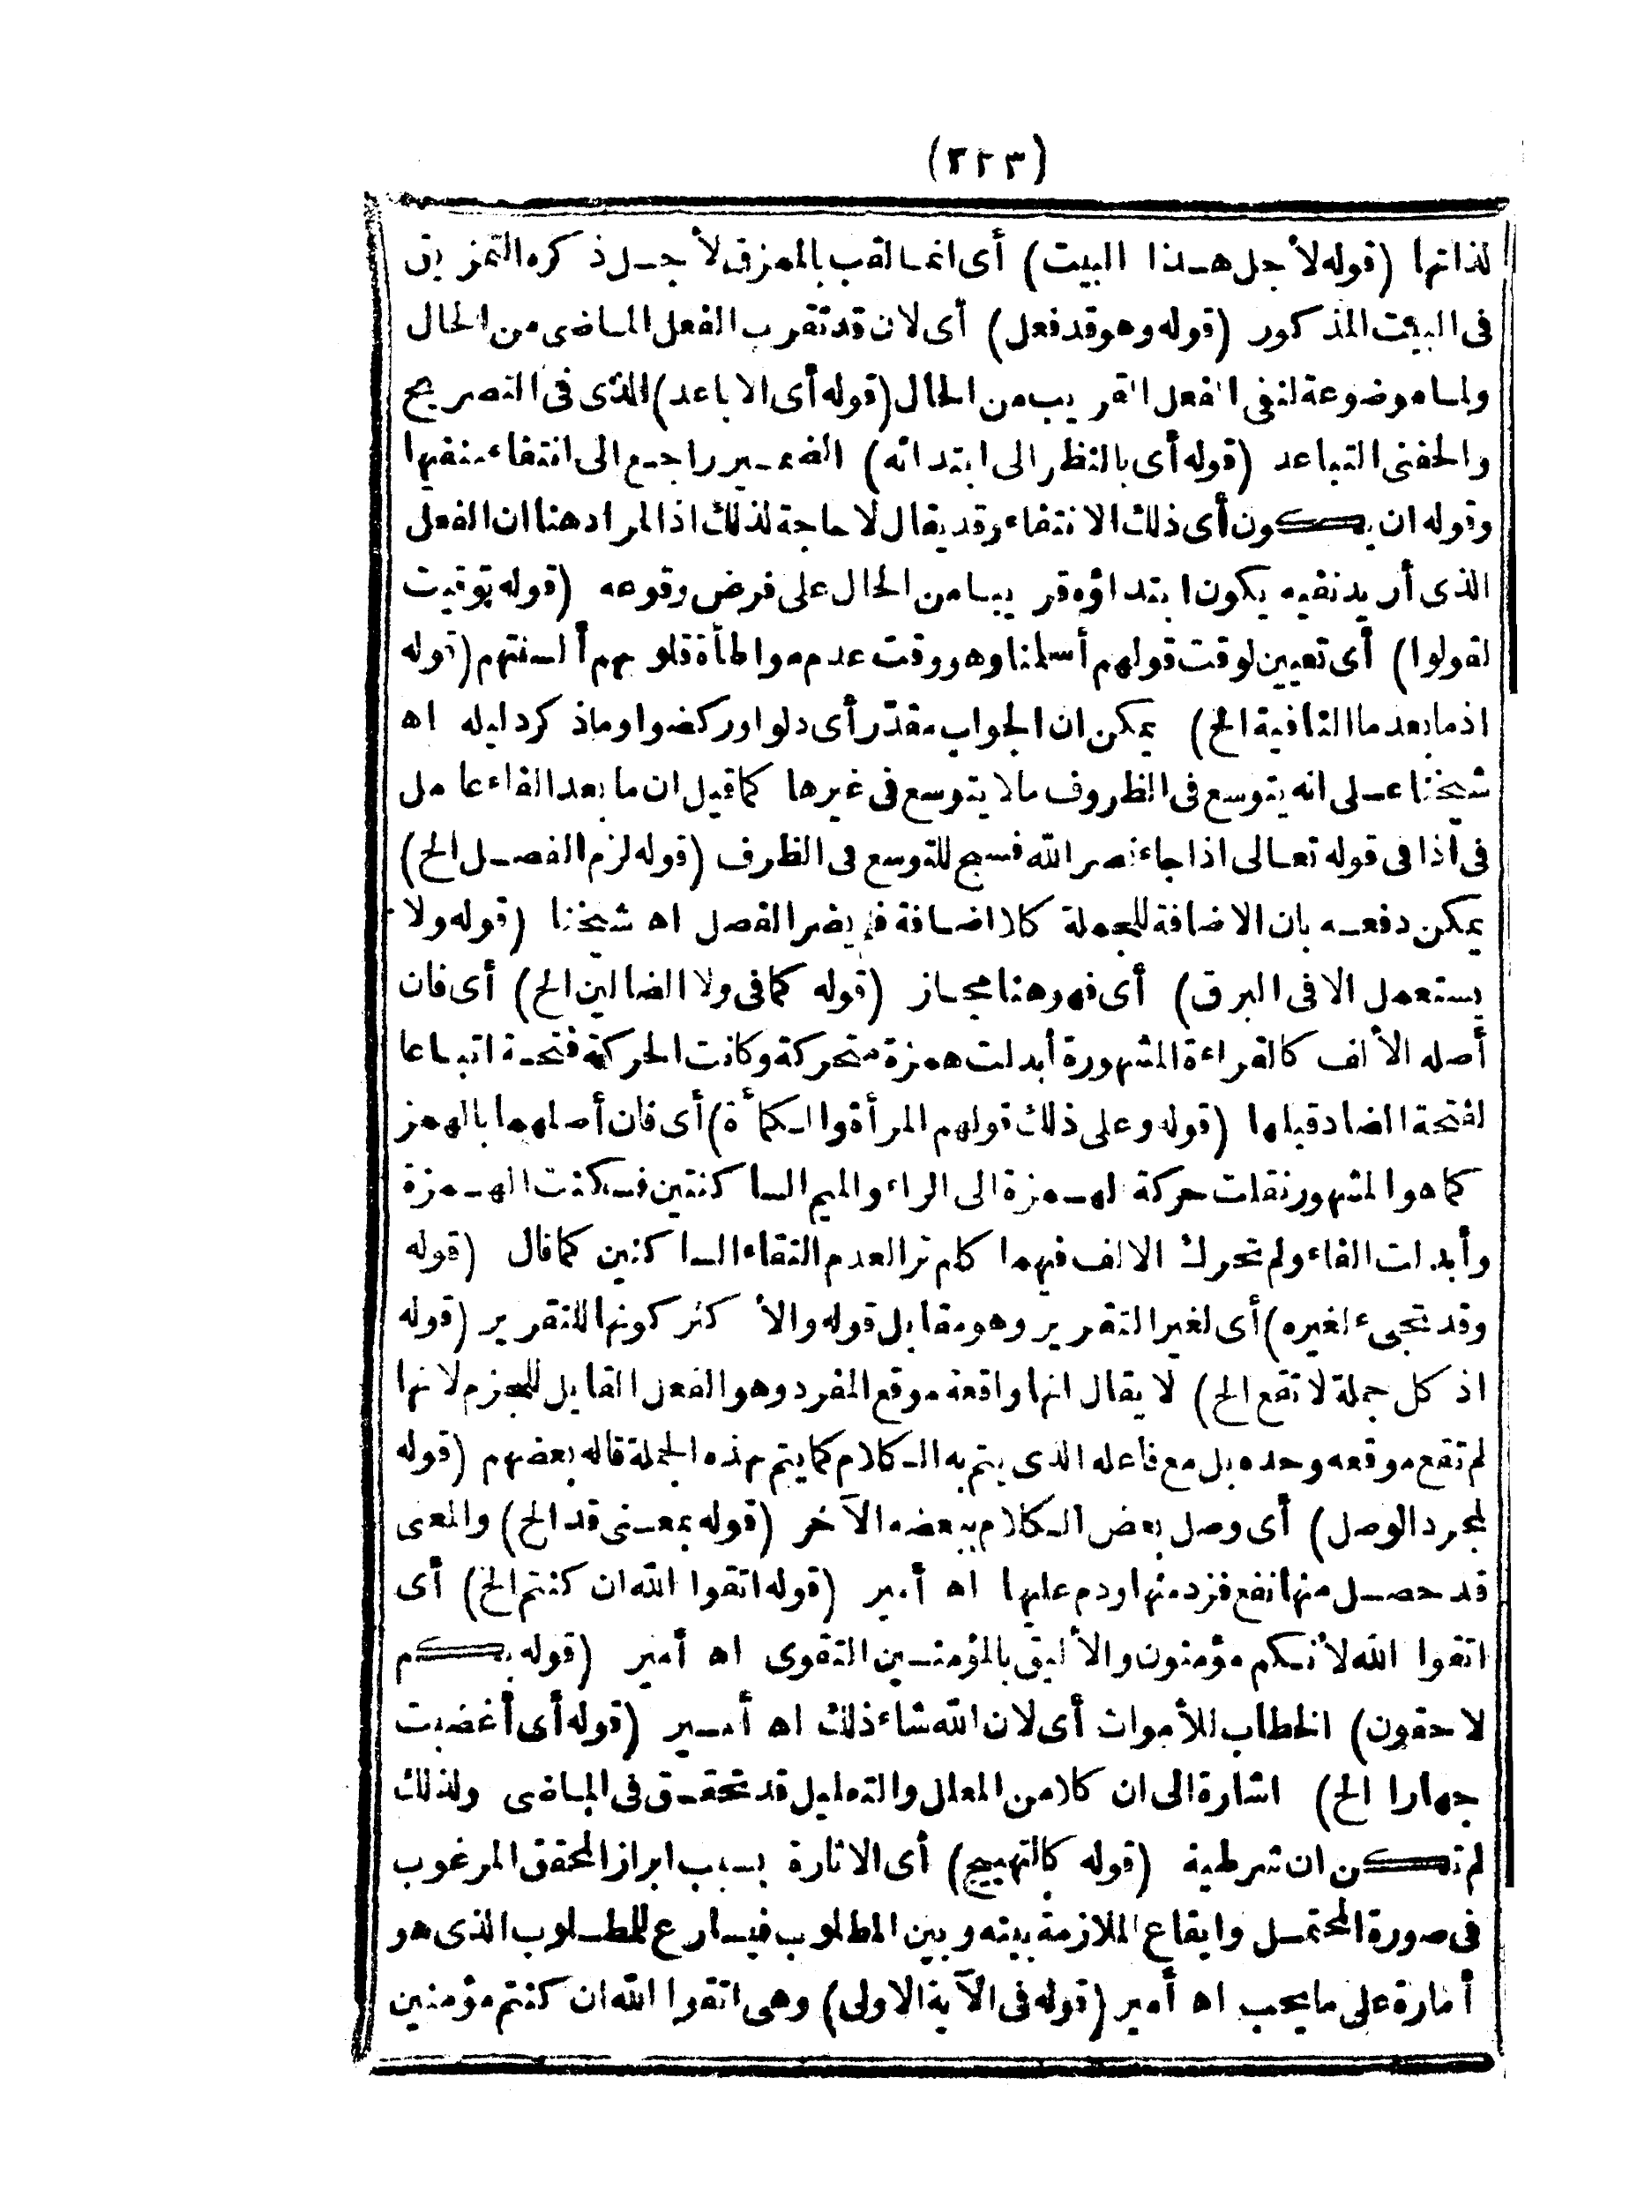 (٣٢٣)
لذاتها (قوله لأجل هذا البيت) أى انما لقب بالممزق لأجل ذكره التمزيق
فى البيت المذكور (قوله وهو قد فعل) أى لان قد تقرب الفعل الماضى من الحال
ولما موضوعة لنفى الفعل القريب من الحال (قوله أى الاباعد) الذى فى التصريح
والحفنى التباعد (قوله أى بالنظر الى ابتدائه) الضمير راجع الى انتفاء منفيها
وقوله ان يكون أى ذلك الانتفاء وقد يقال لا حاجة لذلك اذ المراد هنا ان الفعل
الذى أريد نفيه يكون ابتداؤه قريبا من الحال على فرض وقوعه (قوله توقيت
لقولوا) أى تعيين لوقت قولهم أسلمنا وهو وقت عدم مواطأة قلوبهم ألسنتهم (قوله
اذ ما بعد ما النافية الخ) يمكن ان الجواب مقدّر أى دلوا وركضوا وما ذكر دليله اه
شيخنا على انه يتوسع فى الظروف ما لا يتوسع فى غيرها كما قيل ان ما بعد الفاء عامل
فى اذا فى قوله تعالى اذا جاء نصر الله فسبح للتوسع فى الظرف (قوله لزم الفصل الخ)
يمكن دفعه بان الاضافة للجملة كلا اضافة فلم يضر الفصل اه شيخنا (قوله ولا
يستعمل الا فى البرق) أى فهو هنا مجاز (قوله كما فى ولا الضالين الخ) أى فان
أصله الألف كالقراءة المشهورة أبدلت همزة متحركة وكانت الحركة فتحة اتباعا
لفتحة الضاد قبلها (قوله وعلى ذلك قولهم المرأة والكمأة) أى فان أصلهما بالهمز
كما هو المشهور نقلت حركة لهمزة الى الراء والميم الساكنتين فسكنت الهمزة
وأبدلت الفاء ولم تحرك الالف فيهما كلم ترا لعدم التقاء الساكنين كما قال (قوله
وقد تجىء لغيره) أى لغير التقرير وهو مقابل قوله والأكثر كونها للتقرير (قوله
اذ كل جملة لا تقع الخ) لا يقال انها واقعة موقع المفرد وهو الفعل القابل للجزم لانها
لم تقع موقعه وحده بل مع فاعله الذى يتم به الكلام كما يتم بهذه الجملة قاله بعضهم (قوله
لمجرد الوصل) أى وصل بعض الكلام ببعضه الآخر (قوله بمعنى قد الخ) والمعنى
قد حصل منها نفع فزد منها ودم عليها اه أمير (قوله اتقوا الله ان كنتم الخ) أى
اتقوا الله لأنكم مؤمنون والأليق بالمؤمنين التقوى اه أمير (قوله بكم
لاحقون) الخطاب للأموات أى لان الله شاء ذلك اه أمير (قوله أى أغضبت
جهارا الخ) اشارة الى ان كلا من المعلل والتعليل قد تحقق فى الماضى ولذلك
لم تكن ان شرطية (قوله كالتهييج) أى الاثارة بسبب ابراز المحقق المرغوب
فى صورة المحتمل وايقاع الملازمة بينه وبين المطلوب فيسارع للمطلوب الذى هو
أمارة على ما يحب اه أمير (قوله فى الآية الاولى) وهى اتقوا الله ان كنتم مؤمنين